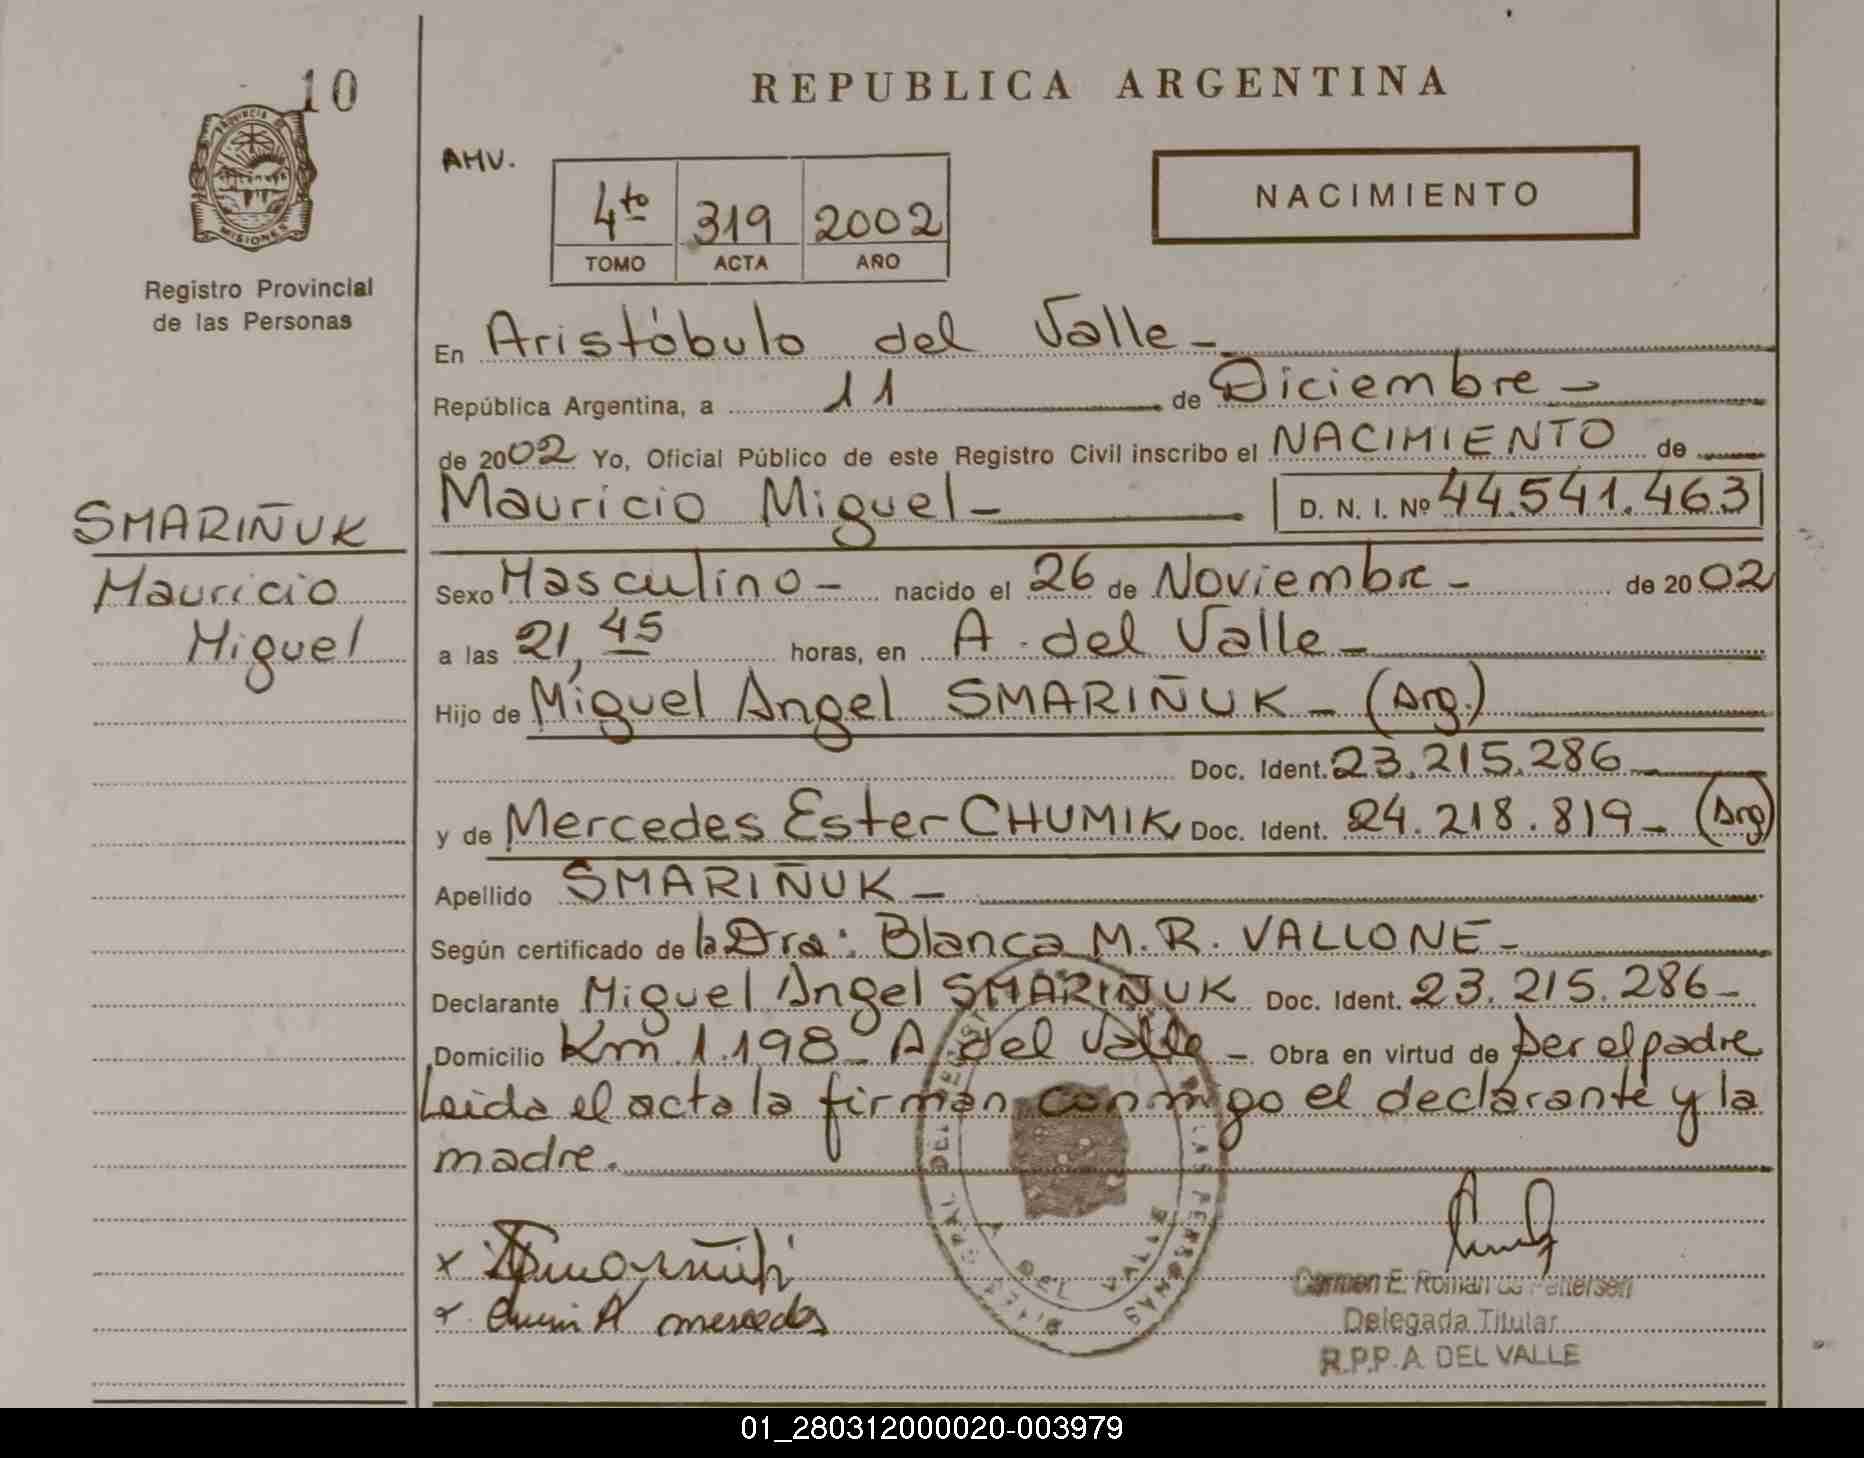 10
PROVINCIA DE
MISIONES
Registro Provincial
de las Personas
SMARIÑUK
Mauricio
Miguel
REPUBLICA ARGENTINA
AHV.
4to 319 2002
TOMO ACTA AÑO
NACIMIENTO
En Aristóbulo del Valle -
República Argentina, a 11 de Diciembre -
de 2002 Yo, Oficial Público de este Registro Civil inscribo el NACIMIENTO de
Mauricio Miguel - D. N. I. Nº 44.541.463
Sexo Masculino - nacido el 26 de Noviembre - de 2002
a las 21,45 horas, en A. del Valle -
Hijo de Miguel Angel SMARIÑUK - (Arg.)
Doc. Ident. 23.215.286
y de Mercedes Ester CHUMIK Doc. Ident. 24.218.819 - (Arg)
Apellido SMARIÑUK -
Según certificado de la Dra: Blanca M.R. VALLONE -
Declarante Miguel Angel SMARIÑUK Doc. Ident. 23.215.286 -
Domicilio Km 1.198 - A del Valle - Obra en virtud de ser el padre
Leida el acta la firman conmigo el declarante y la
madre.
A DEL VALLE
x
x mercedes
Carmen E. Roman
Delegada Titular
R.P.P. A. DEL VALLE
01_280312000020-003979